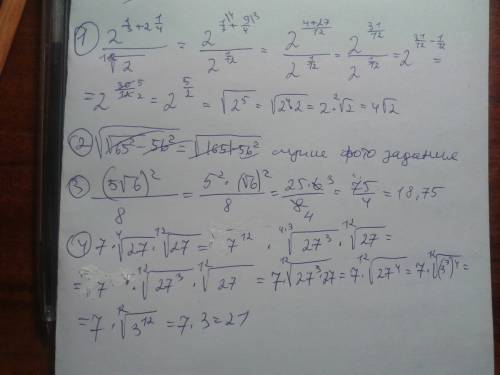 ① 2^(1/3 + 2 1/4) / ¹²√2 = 2^(1/3 \4 + 9/4 \3) / 2^(1/12) = 2^((4+27)/12) / 2^(1/12) = 2^(31/12) / 2^(1/12) = 2^(31/12 - 1/12) =
= 2^(30/12) = 2^(5/2) = √2⁵ = √2⁴·2 = 2·²√2 = 4√2
② √√65² - 56² = √165-56² лучше фото задания
③ (5√6)² / 8 = 5² · (√6)² / 8 = 25·6 3 / 8 4 = 75 / 4 = 18,75
④ 7·⁴√27 · ¹²√27 = 7 ¹² · ⁴·³√27³ · ¹²√27 =
= 7 · ¹²√27³ · ¹²√27 = 7·¹²√27³·27 = 7·¹²√27⁴ = 7·¹²√(3³)⁴ =
= 7 · ¹²√3¹² = 7·3 = 21